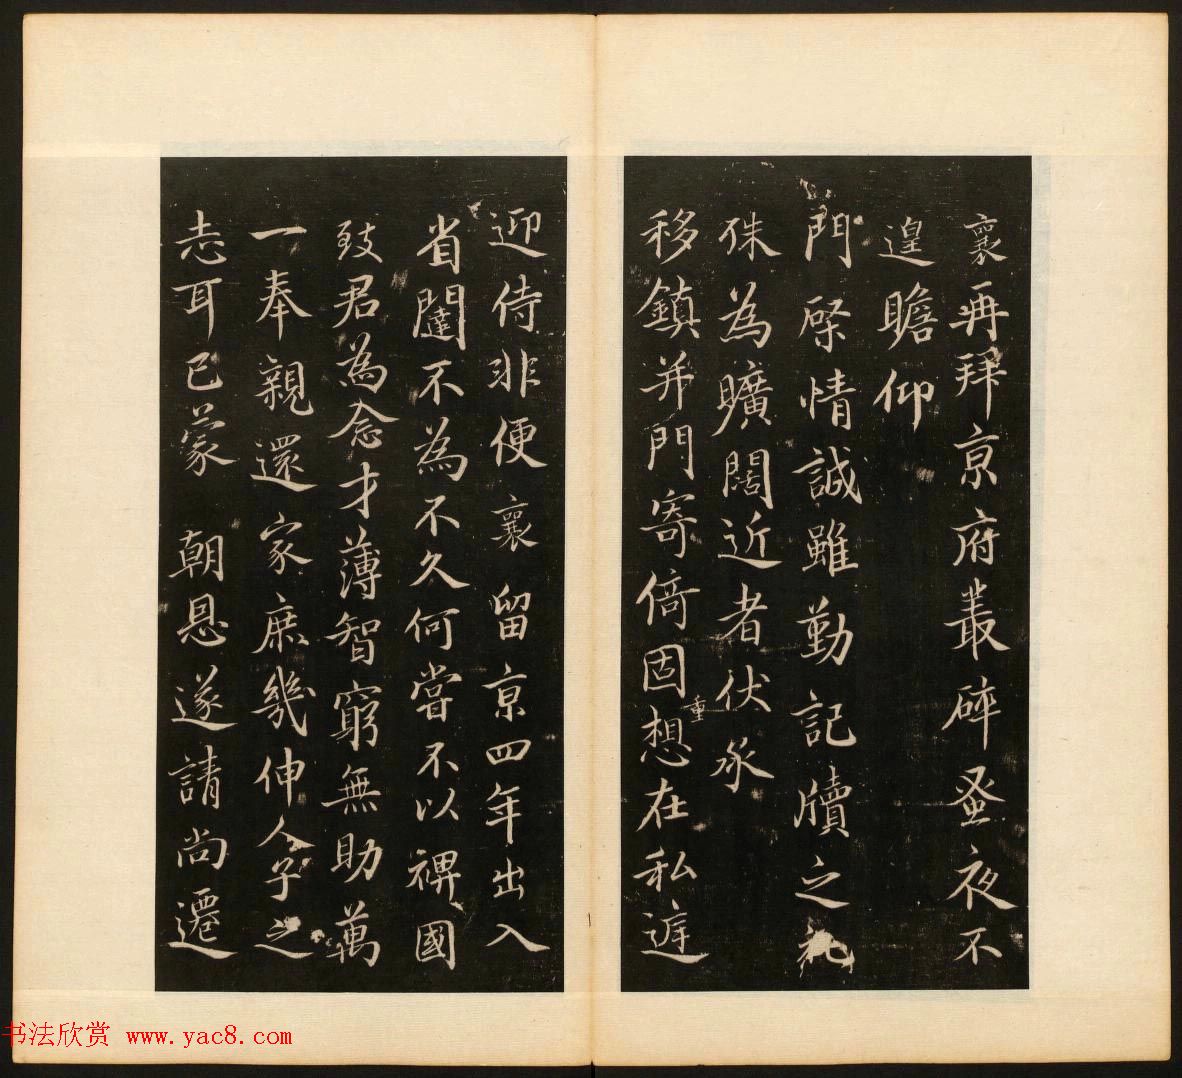 襄再拜京府叢碎蚤夜不
遑瞻仰
門棨情誠雖勤記牘之礼
殊為曠闊近者伏承
移鎮并門寄倚固重想在私遽
迎侍非便襄留京四年出入
省闥不為不久何嘗不以裨國
致君為念才薄智窮無助萬
一奉親還家庶幾伸人子之
志耳已蒙 朝恩遂請尚遷
书法欣赏 www.yac8.com